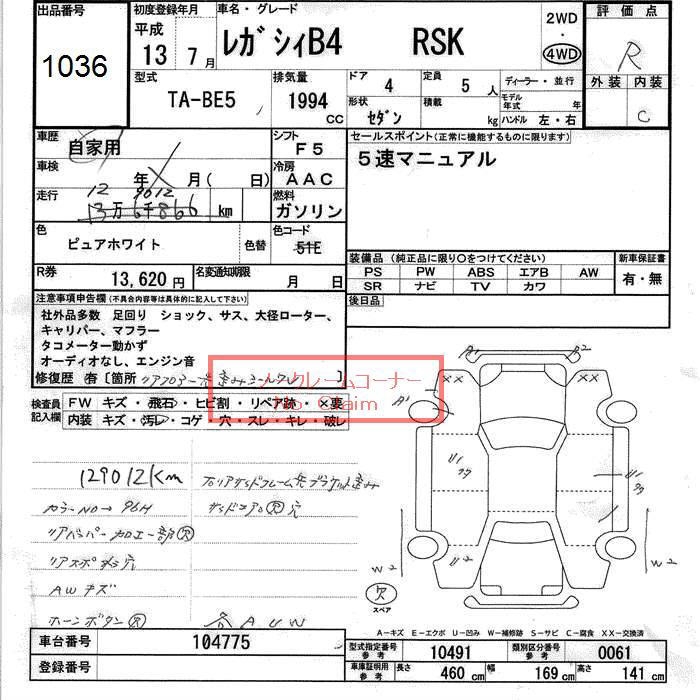 出品番号
1036
初度登録年月
平成
13 7月
車名・グレード
レガシィB4 RSK
2WD
・
4WD
評価点
R
外装 内装
C
型式
TA-BE5
排気量
1994
CC
ドア
4
定員
5 人
ディーラー・並行
形状
セダン
積載
kg
モデル年式 年
ハンドル 左・右
車歴
自家用
シフト
F5
セールスポイント(正常に機能するものに限ります)
5速マニュアル
車検
年 月( 日)
冷房
AAC
走行
12 9012
13万6千866 km
燃料
ガソリン
色
ピュアホワイト
色替
色コード
51E
R券
13,620円
名変通知期限
月 日
装備品(純正品に限り○をつけてください)
PS PW ABS エアB AW
SR ナビ TV カワ
新車保証書
有・無
後日品
注意事項申告欄(不具合内容等は具体的に記入して下さい)
社外品多数 足回り ショック、サス、大径ローター、
キャリパー、マフラー
タコメーター動かず
オーディオなし、エンジン音
修復歴 有 〔箇所
ノークレームコーナー
No Claim
検査員記入欄
FW キズ・飛石・ヒビ割・リペア跡・×要
内装 キズ・汚レ・コゲ・穴・スレ・キレ・破レ
129012Km
カラーNO→96H
リアバンパー加工一部欠
リアスポ 穴
AWキズ
ホーンボタン欠
右リアサイドフレーム先ブラケット歪み
サイドコアロ欠穴
A1
A2
XX
XX
A1
U1
U1
W2
U2
W2
欠
スペア
A-キズ E-エクボ U-凹み W-補修跡 S-サビ C-腐食 XX-交換済
車台番号
104775
登録番号
型式指定番号
参考
10491
類別区分番号
参考
0061
車庫証明用
参考
長さ
460 cm
幅
169 cm
高さ
141 cm